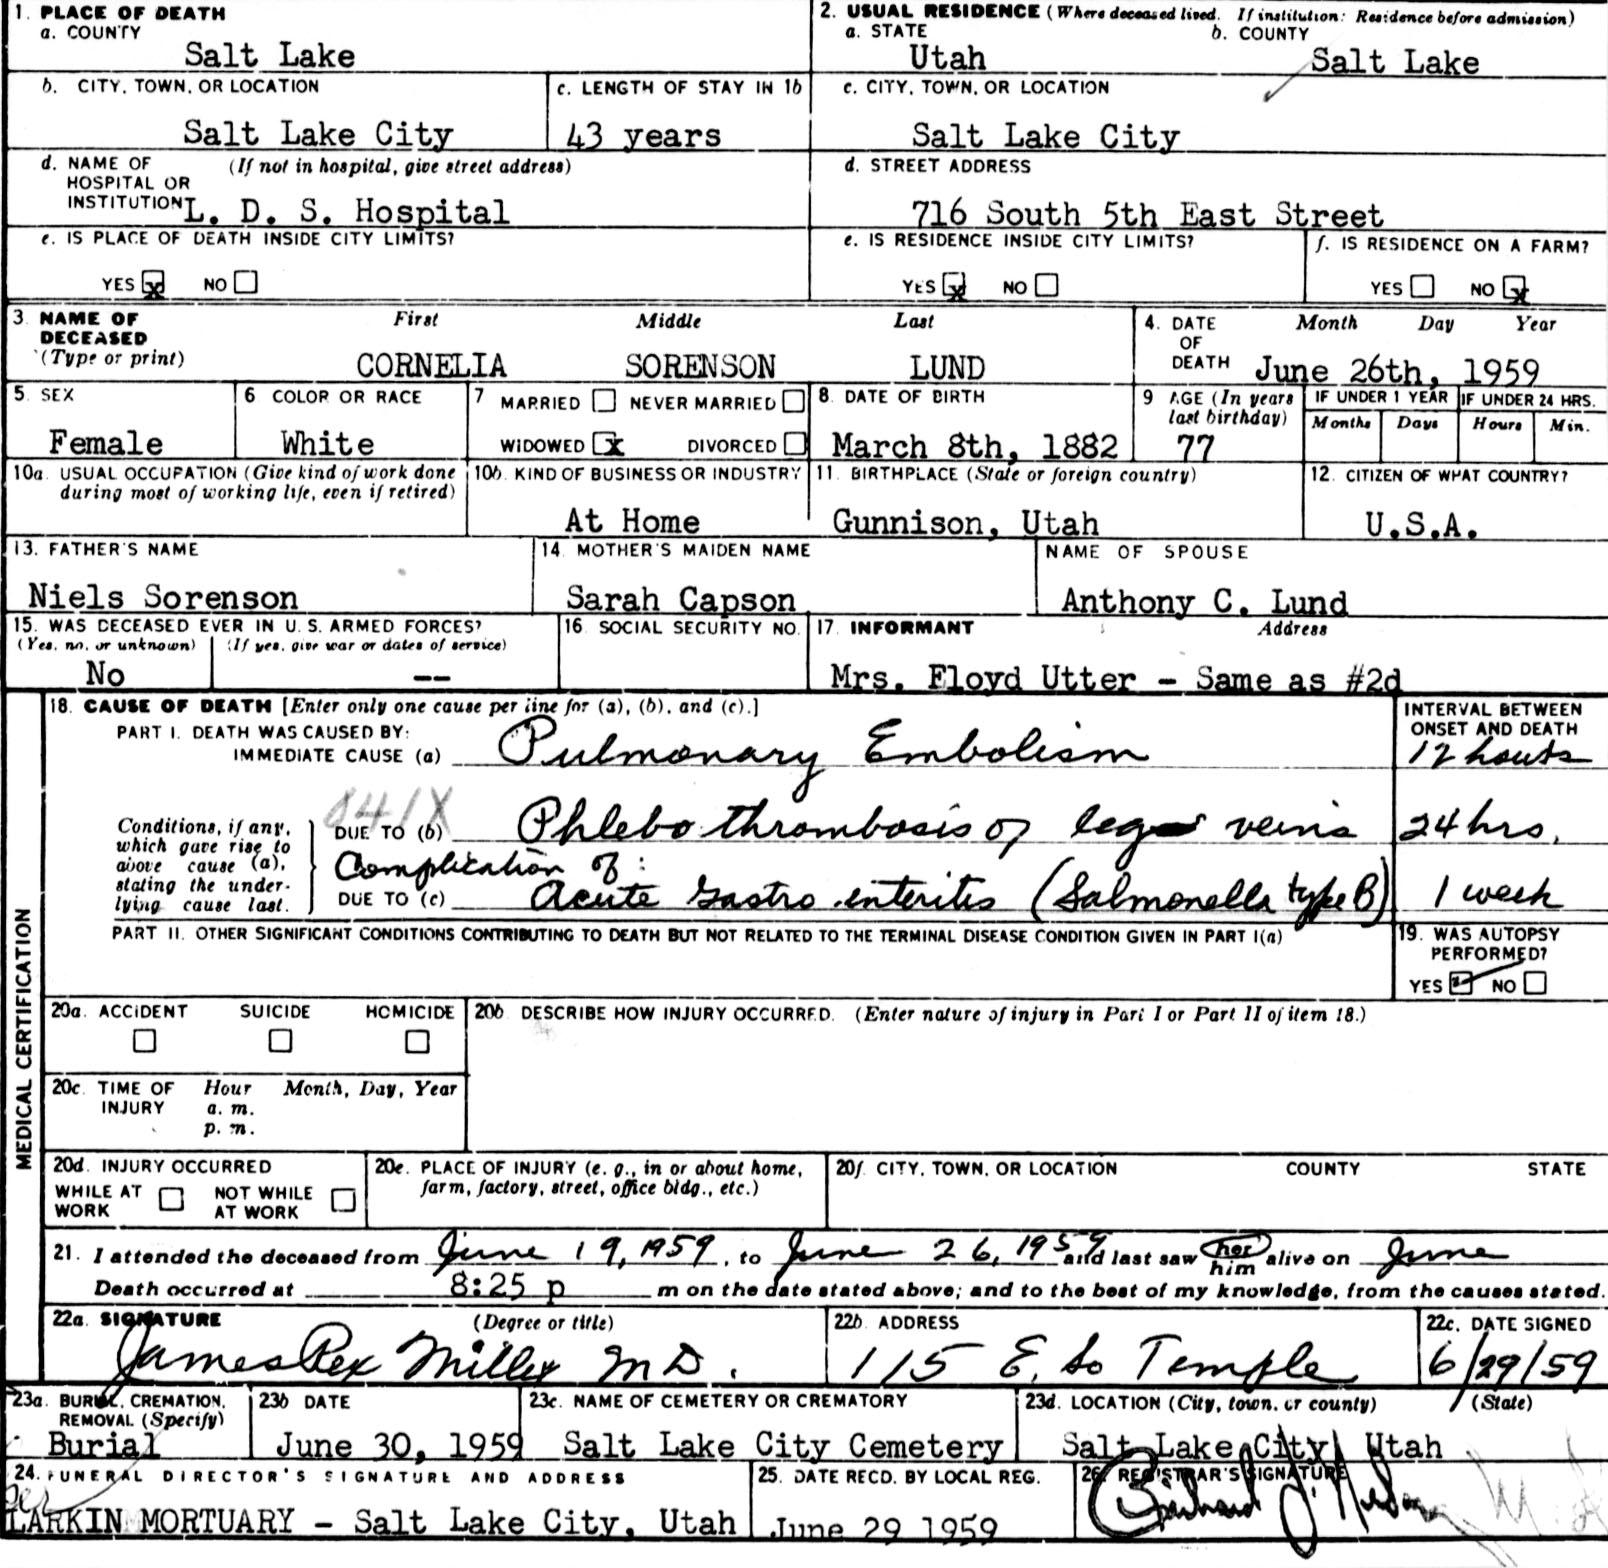 1. PLACE OF DEATH
a. COUNTY
Salt Lake
2. USUAL RESIDENCE (Where deceased lived. If institution: Residence before admission)
a. STATE
Utah
b. COUNTY
Salt Lake
b. CITY, TOWN, OR LOCATION
Salt Lake City
c. LENGTH OF STAY IN 1b
43 years
c. CITY, TOWN, OR LOCATION
Salt Lake City
d. NAME OF (If not in hospital, give street address)
HOSPITAL OR
INSTITUTION L. D. S. Hospital
d. STREET ADDRESS
716 South 5th East Street
e. IS PLACE OF DEATH INSIDE CITY LIMITS?
YES x NO
e. IS RESIDENCE INSIDE CITY LIMITS?
YES x NO
f. IS RESIDENCE ON A FARM?
YES NO x
3. NAME OF DECEASED
(Type or print)
First Middle Last
CORNELIA SORENSON LUND
4. DATE OF DEATH
Month Day Year
June 26th, 1959
5. SEX
Female
6 COLOR OR RACE
White
7 MARRIED NEVER MARRIED
WIDOWED x DIVORCED
8. DATE OF BIRTH
March 8th, 1882
9 AGE (In years last birthday)
77
IF UNDER 1 YEAR
Months Days
IF UNDER 24 HRS.
Hours Min.
10a. USUAL OCCUPATION (Give kind of work done
during most of working life, even if retired)
10b. KIND OF BUSINESS OR INDUSTRY
At Home
11. BIRTHPLACE (State or foreign country)
Gunnison, Utah
12. CITIZEN OF WHAT COUNTRY?
U.S.A.
13. FATHER'S NAME
Niels Sorenson
14. MOTHER'S MAIDEN NAME
Sarah Capson
NAME OF SPOUSE
Anthony C. Lund
15. WAS DECEASED EVER IN U.S. ARMED FORCES?
(Yes, no, or unknown) (If yes, give war or dates of service)
No --
16. SOCIAL SECURITY NO.
17. INFORMANT Address
Mrs. Floyd Utter - Same as #2d
MEDICAL CERTIFICATION
18. CAUSE OF DEATH [Enter only one cause per line for (a), (b), and (c).]
PART I. DEATH WAS CAUSED BY:
IMMEDIATE CAUSE (a) Pulmonary Embolism
INTERVAL BETWEEN
ONSET AND DEATH
12 hours
Conditions, if any,
which gave rise to
above cause (a),
stating the under-
lying cause last.
041X
DUE TO (b) Phlebothrombosis of leg veins
24 hrs.
Complication of:
DUE TO (c) Acute Gastro enteritis (Salmonella type B)
1 week
PART II. OTHER SIGNIFICANT CONDITIONS CONTRIBUTING TO DEATH BUT NOT RELATED TO THE TERMINAL DISEASE CONDITION GIVEN IN PART I(a)
19. WAS AUTOPSY
PERFORMED?
YES NO
20a. ACCIDENT SUICIDE HOMICIDE
20b. DESCRIBE HOW INJURY OCCURRED. (Enter nature of injury in Part I or Part II of item 18.)
20c. TIME OF INJURY
Hour Month, Day, Year
a. m.
p. m.
20d. INJURY OCCURRED
WHILE AT WORK NOT WHILE AT WORK
20e. PLACE OF INJURY (e. g., in or about home,
farm, factory, street, office bldg., etc.)
20f. CITY, TOWN, OR LOCATION COUNTY STATE
21. I attended the deceased from June 19, 1959, to June 26, 1959 and last saw her him alive on June
Death occurred at 8:25 p m on the date stated above; and to the best of my knowledge, from the causes stated.
22a. SIGNATURE (Degree or title)
James Rex Miller MD.
22b. ADDRESS
115 E. So Temple
22c. DATE SIGNED
6/29/59
23a. BURIAL, CREMATION,
REMOVAL (Specify)
Burial
23b DATE
June 30, 1959
23c. NAME OF CEMETERY OR CREMATORY
Salt Lake City Cemetery
23d. LOCATION (City, town, or county) (State)
Salt Lake City Utah
24. FUNERAL DIRECTOR'S SIGNATURE AND ADDRESS
per
LARKIN MORTUARY - Salt Lake City, Utah
25. DATE RECD. BY LOCAL REG.
June 29 1959
26. REGISTRAR'S SIGNATURE